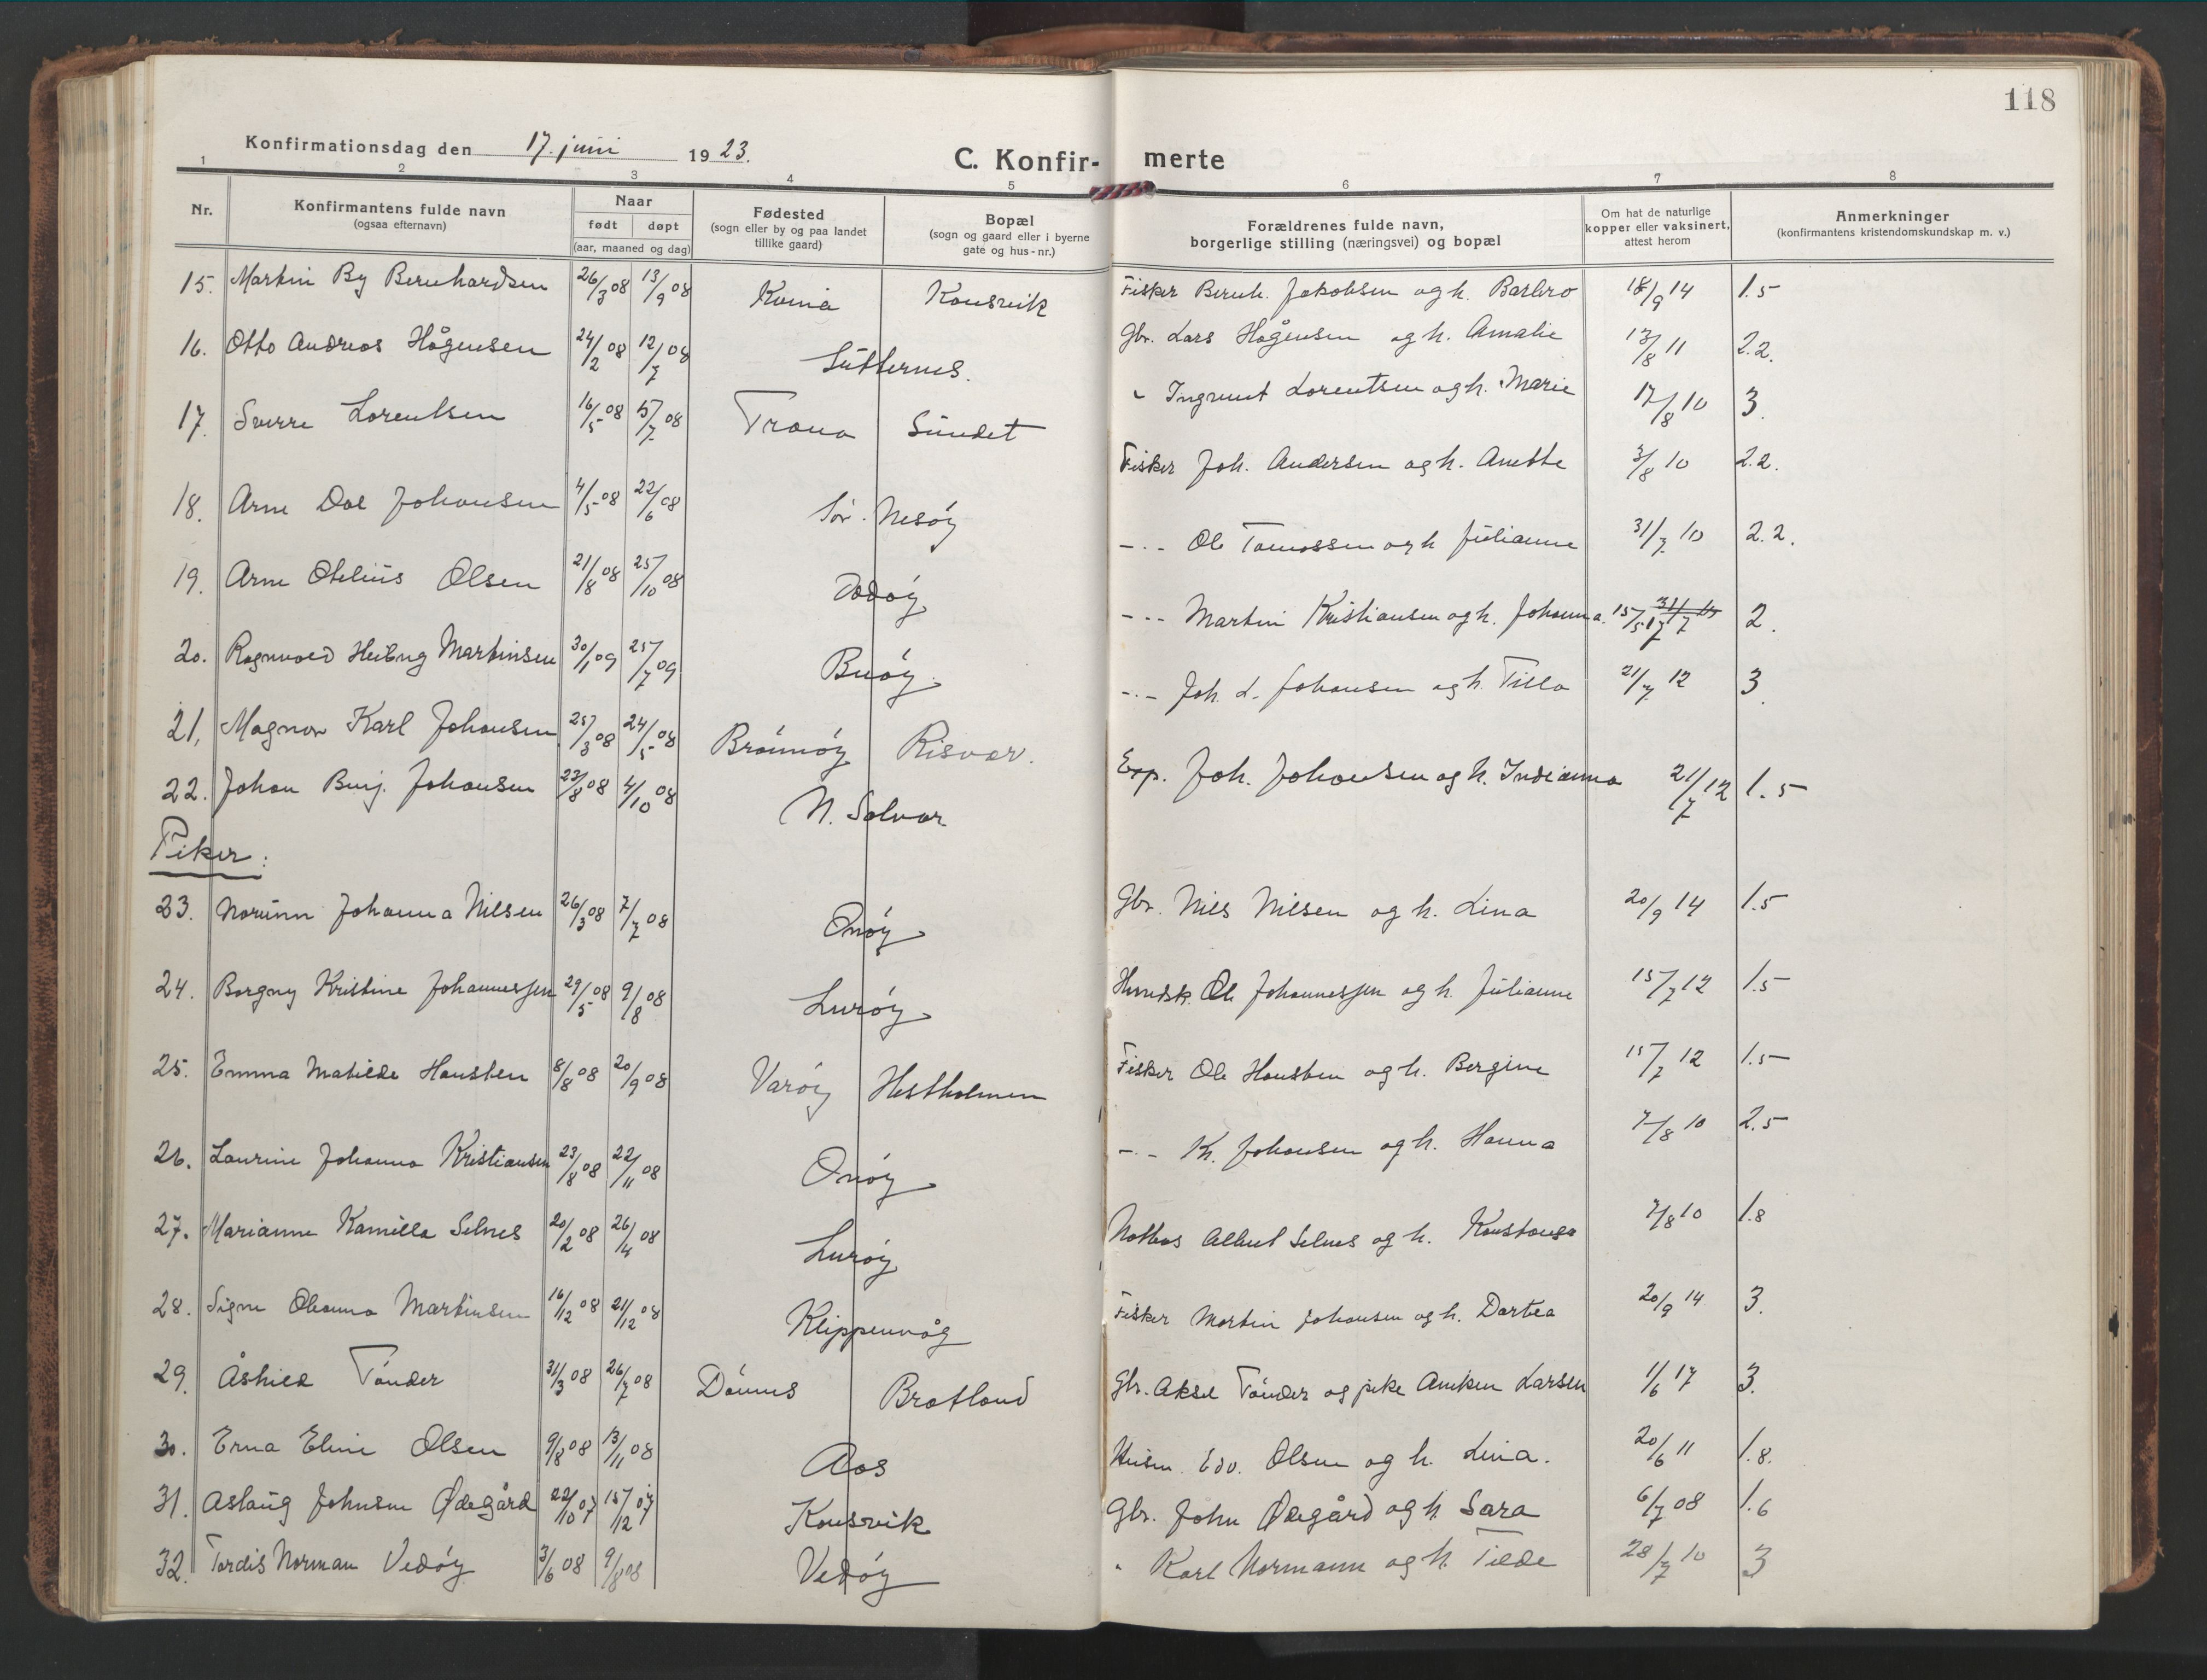 118
Konfirmationsdag den 17. juni 1923.
C. Konfir- merte
1 2 3 4 5 6 7 8
Nr.
Konfirmantens fulde navn (ogsaa efternavn)
Naar
født døpt
(aar, maaned og dag)
Fødested (sogn eller by og paa landet tillike gaard)
Bopæl (sogn og gaard eller i byerne gate og hus-nr.)
Forældrenes fulde navn, borgerlige stilling (næringsvei) og bopæl
Om hat de naturlige kopper eller vaksinert, attest herom
Anmerkninger (konfirmantens kristendomskundskap m. v.)
15. Martin By Bernhardsen 26/3 08 13/9 08 Kvina Konsvik Fisker Bernh. Jakobsen og h. Barbro 18/9 14 1.5
16. Otto Andreas Hågensen 24/2 08 12/7 08 Lütternes. Gbr. Lars Hågensen og h. Amalie 13/8 11 2.2.
17. Sverre Lorentsen 16/5 08 5/7 08 Træna Sündet " Ingvart Lorentsen og h. Marie 17/8 10 3.
18. Arne Dal Johansen 4/5 08 22/6 08 Sør. Nesöy Fisker Joh. Andersen og h. Anette 3/8 10 2.2.
19. Arne Oteliüs Olsen 21/8 08 25/10 08 Dodöy -"- Ole Tomassen og h Jülianne 31/7 10 2.2.
20. Ragnvald Hedvig Martinsen 30/1 09 25/7 09 Buöy -"- Martin Kristiansen og h. Johanna. 15/5 17 2.
21. Magnor Karl Johansen 25/3 08 24/5 08 Brönnöy Risvær. -"- Joh. L. Johansen og h. Tilla 21/7 12 3.
22. Johan Benj. Johansen 23/8 08 4/10 08 N. Solvær Exp. Joh. Johansen og h. Indianna 21/7 12 1.5
Piker:
23. Norünn Johanna Nilsen 26/3 08 7/7 08 Onöy Gbr. Nils Nilsen og h. Lina 20/9 14 1.5
24. Borgny Kristine Johannessen 29/5 08 9/8 08 Luröy Handsk. Ole Johannessen og h. Jülianne 15/7 12 1.5
25. Emma Matilde Hansten 8/8 08 20/9 08 Varöy Hestholmen Fisker Ole Hansten og h. Bergine 15/7 12 1.5
26. Laurine Johanna Kristiansen 23/8 08 22/11 08 Onöy -"- Kr. Johansen og h. Hanna 7/8 10 2.5
27. Marianne Kamilla Selnes 20/2 08 26/4 08 Luröy Notbas Albert Selnes og h. Konstanse 7/8 10 1.8
28. Signe Oleanna Martinsen 16/12 08 21/12 08 Klippenvåg Fisker Martin Johansen og h. Dortea 20/9 14 3.
29. Åshild Tönder 31/3 08 26/7 08 Dönnes Bratland Gbr. Aksel Tönder og pike Aniken Larsen 1/6 17 3.
30. Erna Eline Olsen 9/8 08 13/11 08 Aas Husm. Edv. Olsen og h. Lina. 20/6 11 1.8.
31. Aslaüg Johnsen Ødegård 22/10 07 15/12 07 Konsvik Gbr. John Ødegård og h. Sara 6/7 08 1.6
32. Tordis Norman Vedöy 3/6 08 9/8 08 Vedöy " Karl Normann og h. Tilde 28/7 10 3